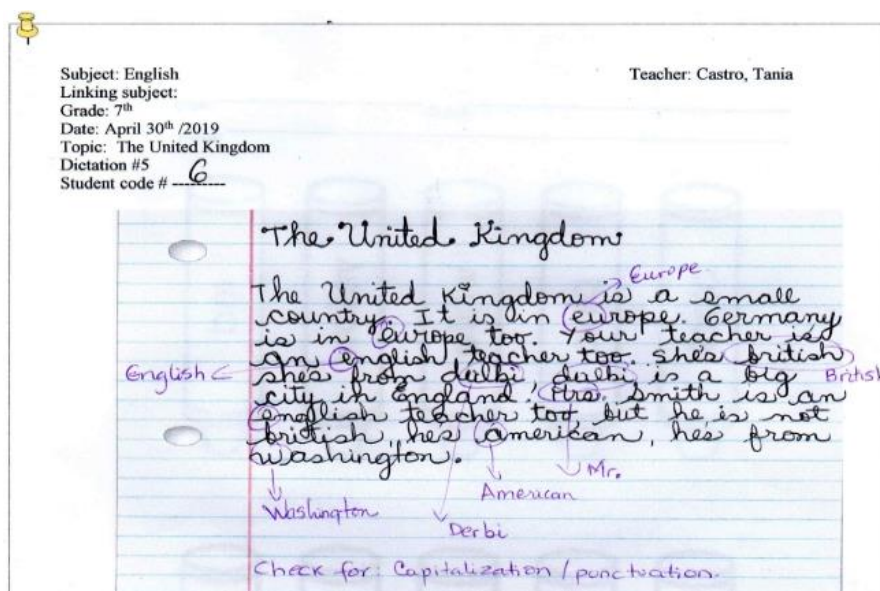 Subject: English
Teacher: Castro, Tania
Linking subject:
Grade: 7th
Date: April 30th /2019
Topic: The United Kingdom
Dictation #5
Student code # 6
The United Kingdom
Europe
The United Kingdom is a small
country. It is in europe. Germany
is in europe too. Your teacher is
an english teacher too. she's british
English
she's from dulbi dulbi is a big
British
city in England. Mrs. Smith is an
english teacher too but he is not
british, he's american, he's from
washington.
Mr.
American
Washington
Derbi
Check for: Capitalization / punctuation.